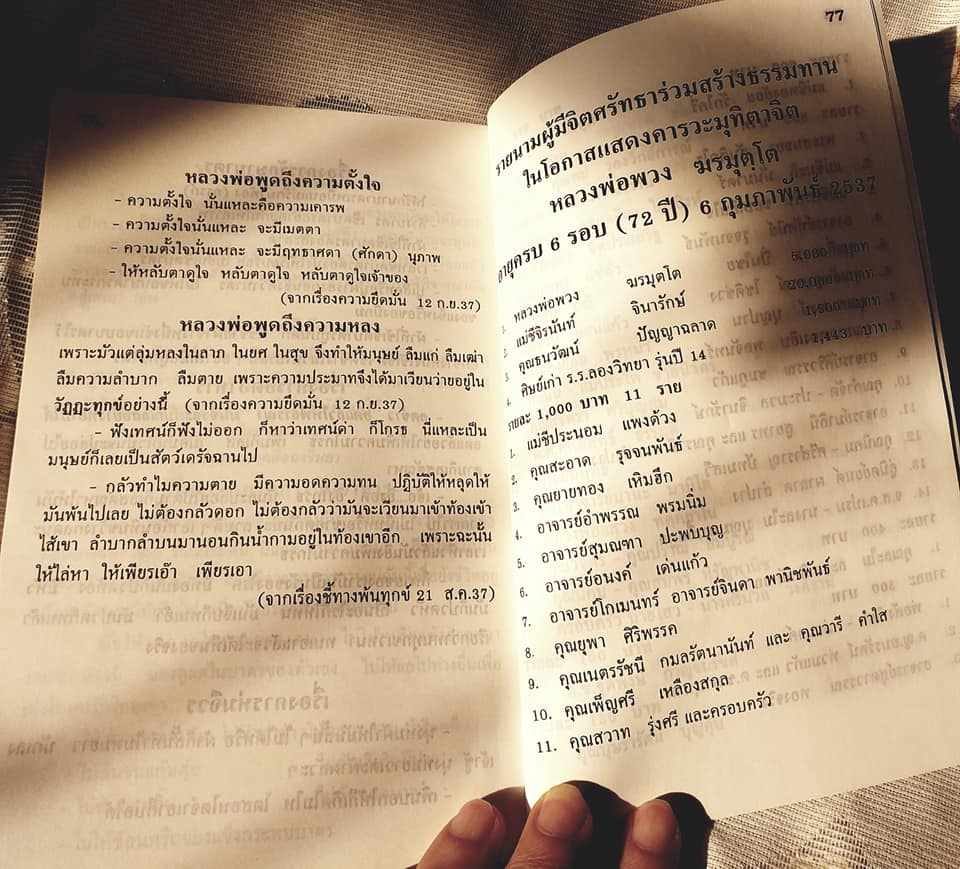 หลวงพ่อพูดถึงความตั้งใจ
- ความตั้งใจ นั่นแหละคือความเคารพ
- ความตั้งใจนั่นแหละ จะมีเมตตา
- ความตั้งใจนั่นแหละ จะมีฤทธาศดา (ศักดา) นุภาพ
- ให้หลับตาดูใจ หลับตาดูใจ หลับตาดูใจเจ้าของ
(จากเรื่องความยึดมั่น 12 ก.ย.37)
หลวงพ่อพูดถึงความหลง
เพราะมัวแต่ลุ่มหลงในลาภ ในยศ ในสุข จึงทำให้มนุษย์ ลืมแก่ ลืมเฒ่า
ลืมความลำบาก ลืมตาย เพราะความประมาทจึงได้มาเวียนว่ายอยู่ใน
วัฏฏะทุกข์อย่างนี้ (จากเรื่องความยึดมั่น 12 ก.ย.37)
- ฟังเทศน์ก็ฟังไม่ออก ก็หาว่าเทศน์ด่า ก็โกรธ นี่แหละเป็น
มนุษย์ก็เลยเป็นสัตว์เดรัจฉานไป
- กลัวทำไมความตาย มีความอดความทน ปฏิบัติให้หลุดให้
มันพ้นไปเลย ไม่ต้องกลัวดอก ไม่ต้องกลัวว่ามันจะเวียนมาเข้าท้องเข้า
ไส้เขา ลำบากลำบนมานอนกินน้ำกามอยู่ในท้องเขาอีก เพราะฉะนั้น
ให้ไล่หา ให้เพียรเอ๊า เพียรเอา
(จากเรื่องชี้ทางพ้นทุกข์ 21 ส.ค.37)
77
รายนามผู้มีจิตศรัทธาร่วมสร้างธรรมทาน
ในโอกาสแสดงคารวะมุทิตาจิต
หลวงพ่อพวง ฆรมุตฺโต
อายุครบ 6 รอบ (72 ปี) 6 กุมภาพันธ์ 2537
1. หลวงพ่อพวง ฆรมุตฺโต บาท
2. แม่ชีจิรนันท์ จินารักษ์ บาท
3. คุณธนวัฒน์ ปัญญาฉลาด บาท
4. ศิษย์เก่า ร.ร.ลองวิทยา รุ่นปี 14 บาท
รายละ 1,000 บาท 11 ราย
1. แม่ชีประนอม แพงด้วง
2. คุณสะอาด รุจจนพันธ์
3. คุณยายทอง เหิมฮึก
4. อาจารย์อำพรรณ พรมนิ่ม
5. อาจารย์สุมณฑา ปะพบบุญ
6. อาจารย์อนงค์ เด่นแก้ว
7. อาจารย์โกเมนทร์ อาจารย์จินดา พานิชพันธ์
8. คุณยุพา ศิริพรรค
9. คุณเนตรรัชนี กมลรัตนานันท์ และ คุณวารี คำใส
10. คุณเพ็ญศรี เหลืองสกุล
11. คุณสวาท รุ่งศรี และครอบครัว